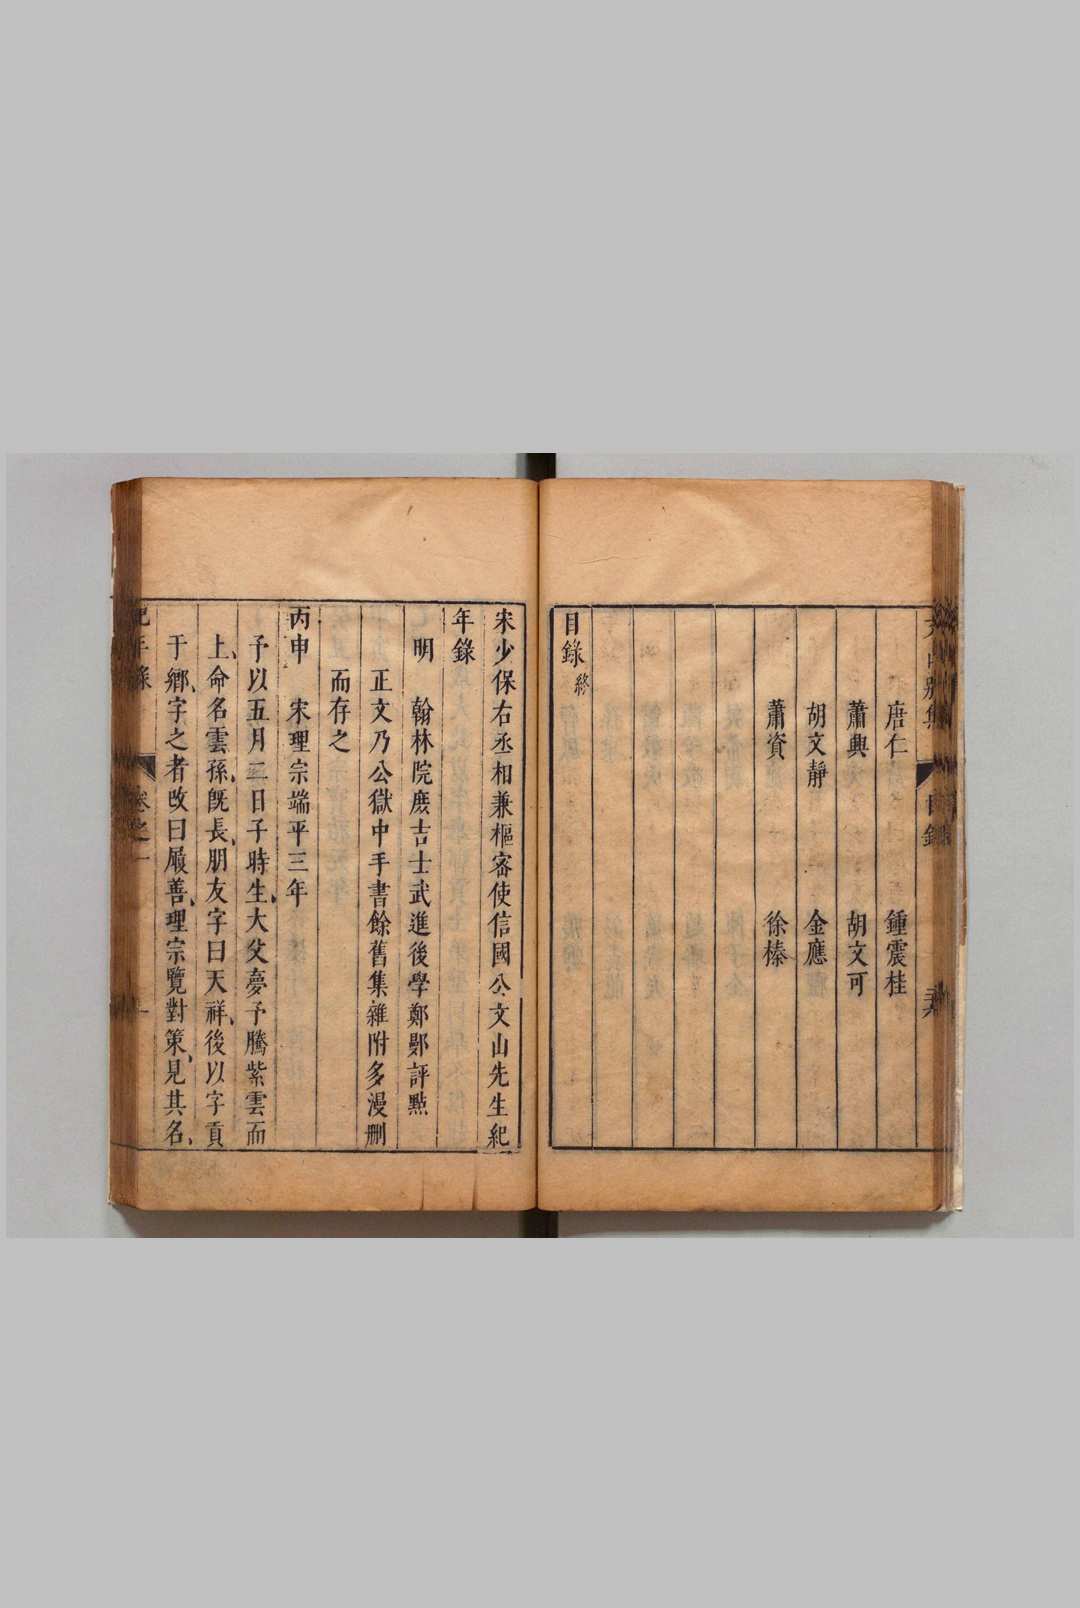 唐仁　鍾震桂
蕭興　胡文可
胡文靜　金應
蕭資　徐榛
目錄終
宋少保右丞相兼樞密使信國公文山先生紀
年錄
明　翰林院庶吉士武進後學鄭鄤評點
正文乃公獄中手書餘舊集雜附多漫刪
而存之
丙申　宋理宗端平三年
予以五月二日子時生大父夢予騰紫雲而
上命名雲孫旣長朋友字曰天祥後以字貢
于鄉字之者改曰履善理宗覽對策見其名
紀年錄　卷之一